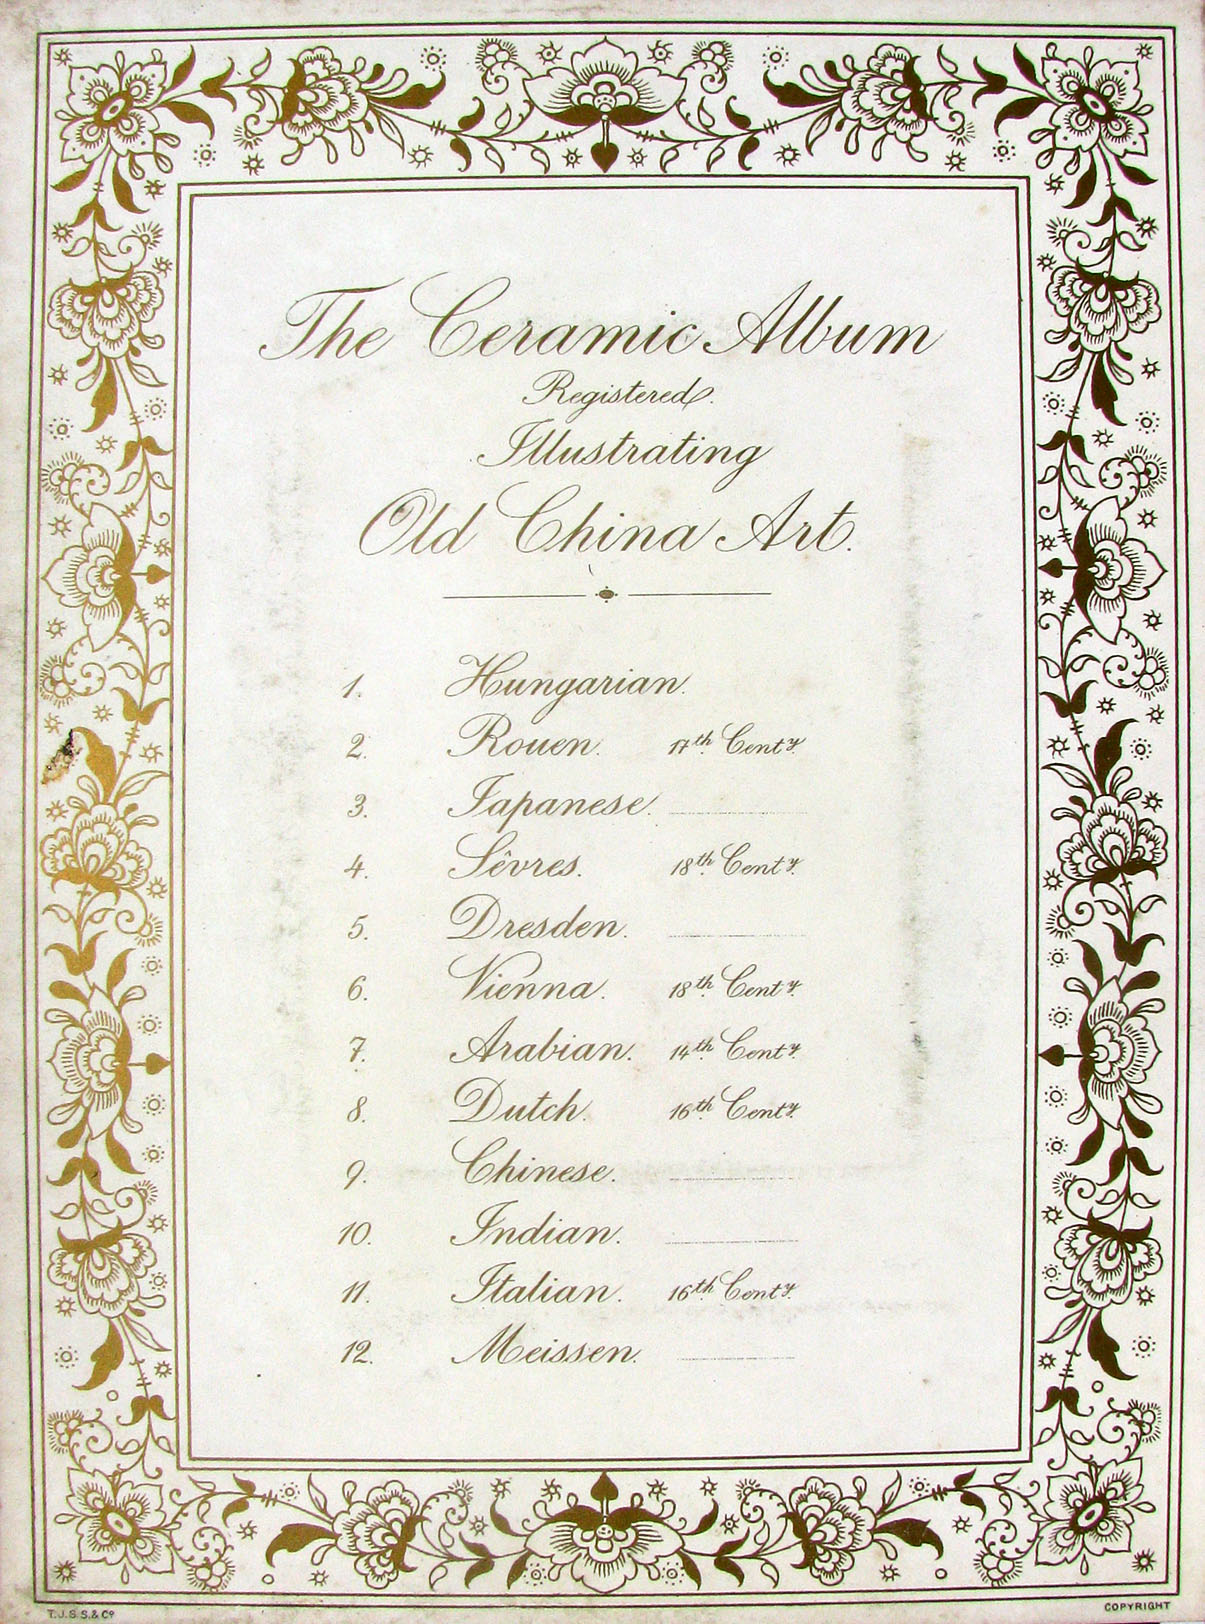 The Ceramic Album
Registered.
Illustrating
Old China Art.
1. Hungarian.
2. Rouen. 17th Centy.
3. Japanese.
4. Sêvres. 18th Centy.
5. Dresden.
6. Vienna. 18th Centy.
7. Arabian. 14th Centy.
8. Dutch. 16th Centy.
9. Chinese.
10. Indian.
11. Italian. 16th Centy.
12. Meissen.
T.J.S.S.& Co COPYRIGHT